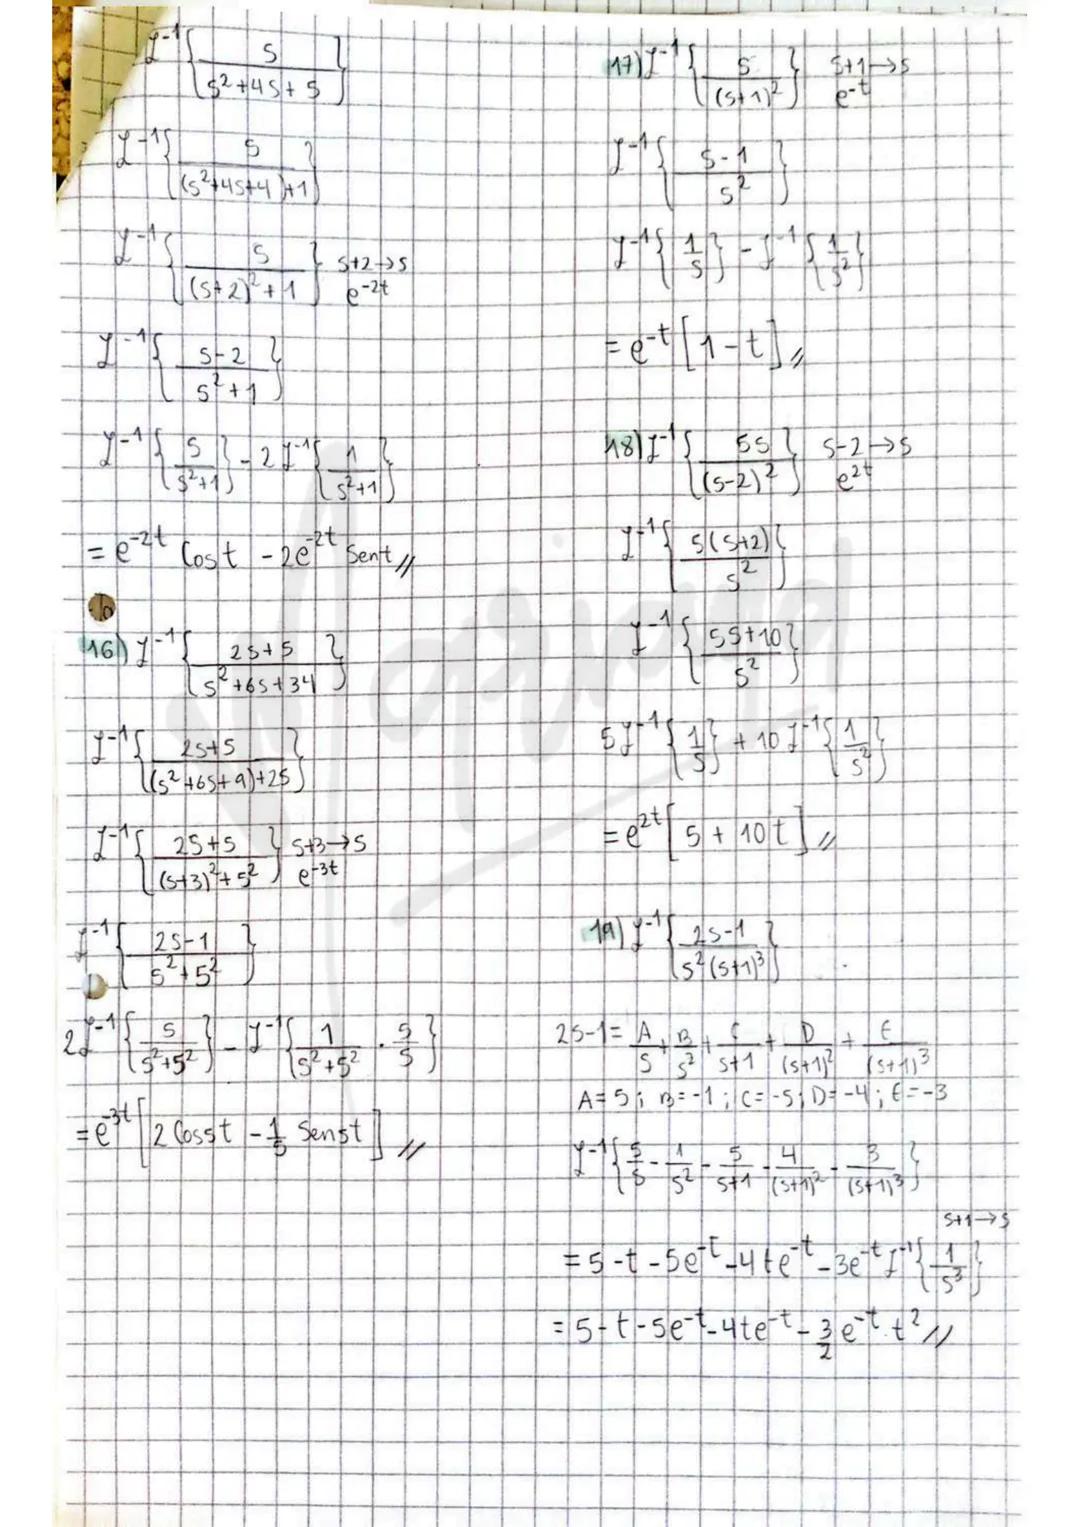 ℒ⁻¹{ s / (s²+4s+5) }
ℒ⁻¹{ s / ((s²+4s+4)+1) }
ℒ⁻¹{ s / ((s+2)²+1) } s+2→s e^(-2t)
ℒ⁻¹{ (s-2) / (s²+1) }
ℒ⁻¹{ s / (s²+1) } - 2ℒ⁻¹{ 1 / (s²+1) }
= e^(-2t) Cost - 2e^(-2t) Sent //
16) ℒ⁻¹{ (2s+5) / (s²+6s+34) }
ℒ⁻¹{ (2s+5) / ((s²+6s+9)+25) }
ℒ⁻¹{ (2s+5) / ((s+3)²+5²) } s+3→s e^(-3t)
ℒ⁻¹{ (2s-1) / (s²+5²) }
2ℒ⁻¹{ s / (s²+5²) } - ℒ⁻¹{ 1 / (s²+5²) · 5/5 }
= e^(-3t) [2 Cos5t - 1/5 Sen5t] //
17) ℒ⁻¹{ s / (s+1)² } s+1→s e^(-t)
ℒ⁻¹{ (s-1) / s² }
ℒ⁻¹{ 1/s } - ℒ⁻¹{ 1/s² }
= e^(-t) [1-t] //
18) ℒ⁻¹{ 5s / (s-2)² } s-2→s e^(2t)
ℒ⁻¹{ 5(s+2) / s² }
ℒ⁻¹{ (5s+10) / s² }
5ℒ⁻¹{ 1/s } + 10ℒ⁻¹{ 1/s² }
= e^(2t) [5 + 10t] //
19) ℒ⁻¹{ (2s-1) / (s²(s+1)³) }
2s-1 = A/s + B/s² + C/(s+1) + D/(s+1)² + E/(s+1)³
A=5; B=-1; C=-5; D=-4; E=-3
ℒ⁻¹{ 5/s - 1/s² - 5/(s+1) - 4/(s+1)² - 3/(s+1)³ }
s+1→s
= 5-t-5e^(-t)-4te^(-t)-3e^(-t) ℒ⁻¹{ 1/s³ }
= 5-t-5e^(-t)-4te^(-t)-3/2 e^(-t)·t² //